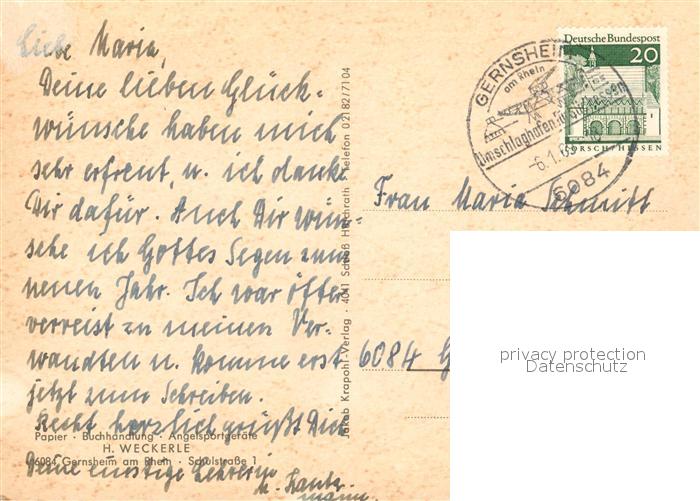 Liebe Maria,
Deine lieben Glück-
wünsche haben mich
sehr erfreut, u. ich danke
Dir dafür. Auch Dir wün-
sche ich Gottes Segen zum
neuen Jahr. Ich war öfter
verreist zu meinen Ver-
wandten u. komme erst
jetzt zum Schreiben.
Recht herzlich grüßt Dich
Deine einstige Lehrerin
Papier · Buchhandlung · Angelsportgeräte
H. WECKERLE
6084 Gernsheim am Rhein · Schulstraße 1
Jakob Krapohl-Verlag · 4041 Schloß Hülchrath · Telefon 02182/7104
GERNSHEIM
am Rhein
Umschlaghafen für
-6.1.69
6084
Deutsche Bundespost
20
LORSCH/HESSEN
Frau Maria Schmitt
6084 G
privacy protection
Datenschutz